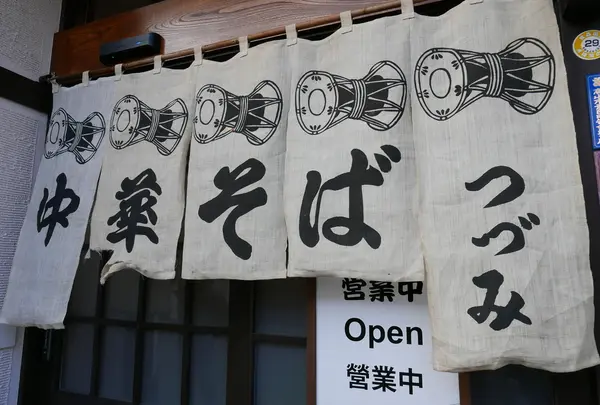 中華そば
つづみ
営業中
Open
營業中
29